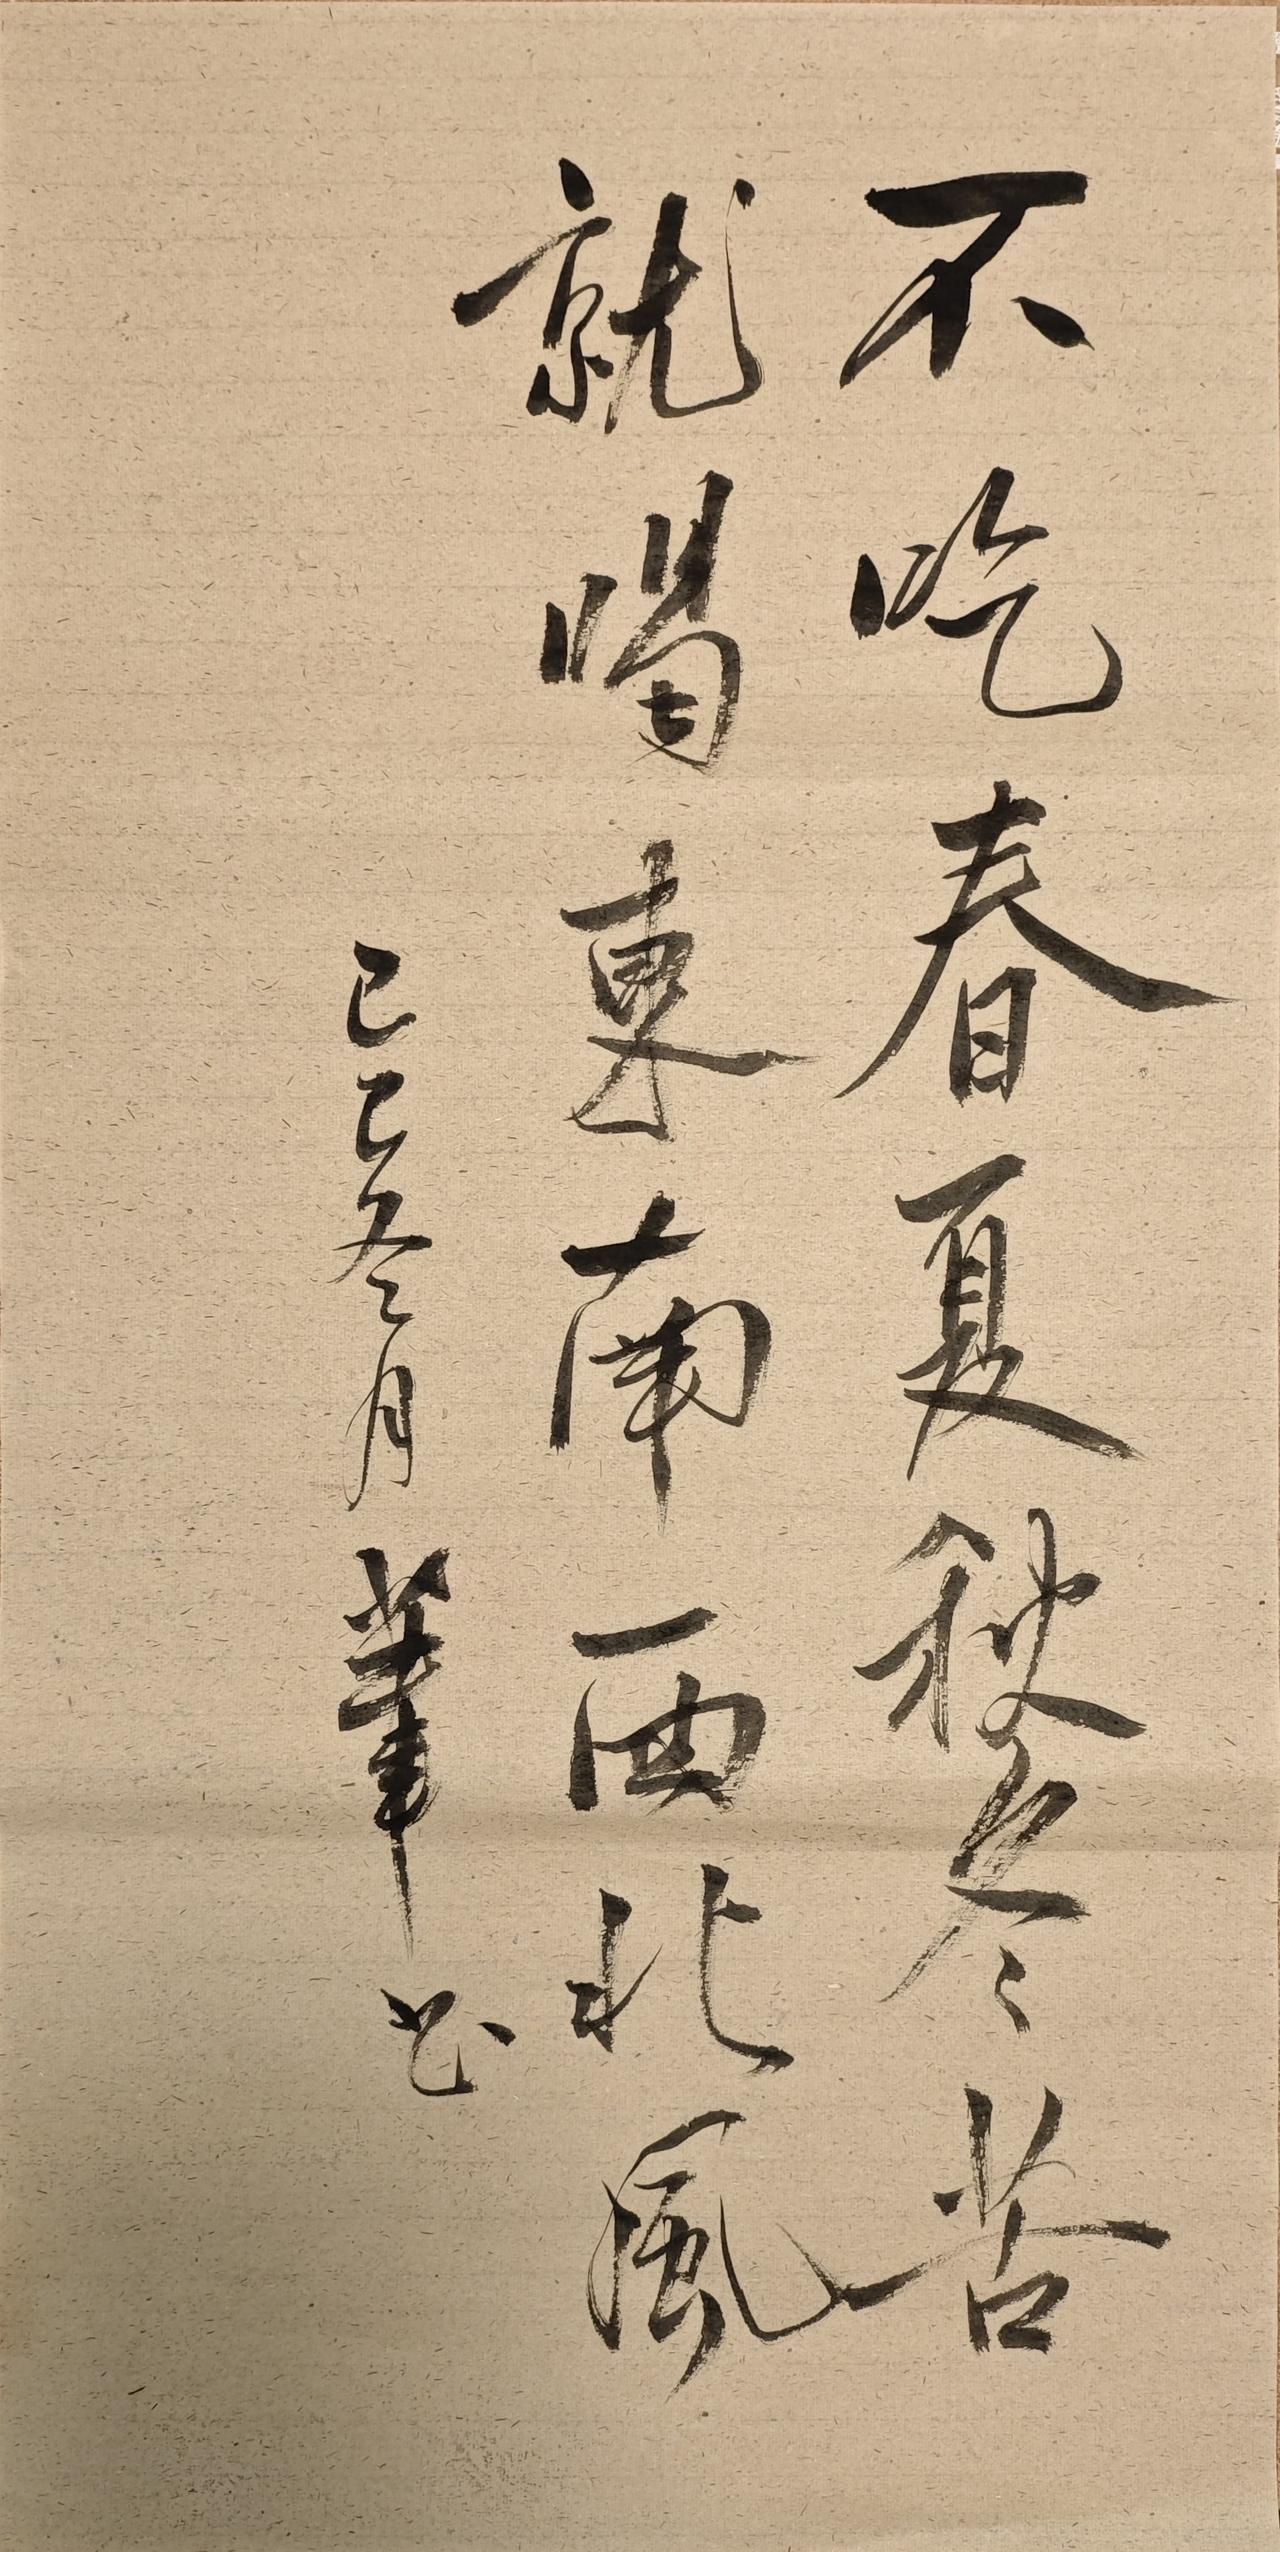 不吃春夏秋冬苦
就喝東南西北風
己巳冬月華书